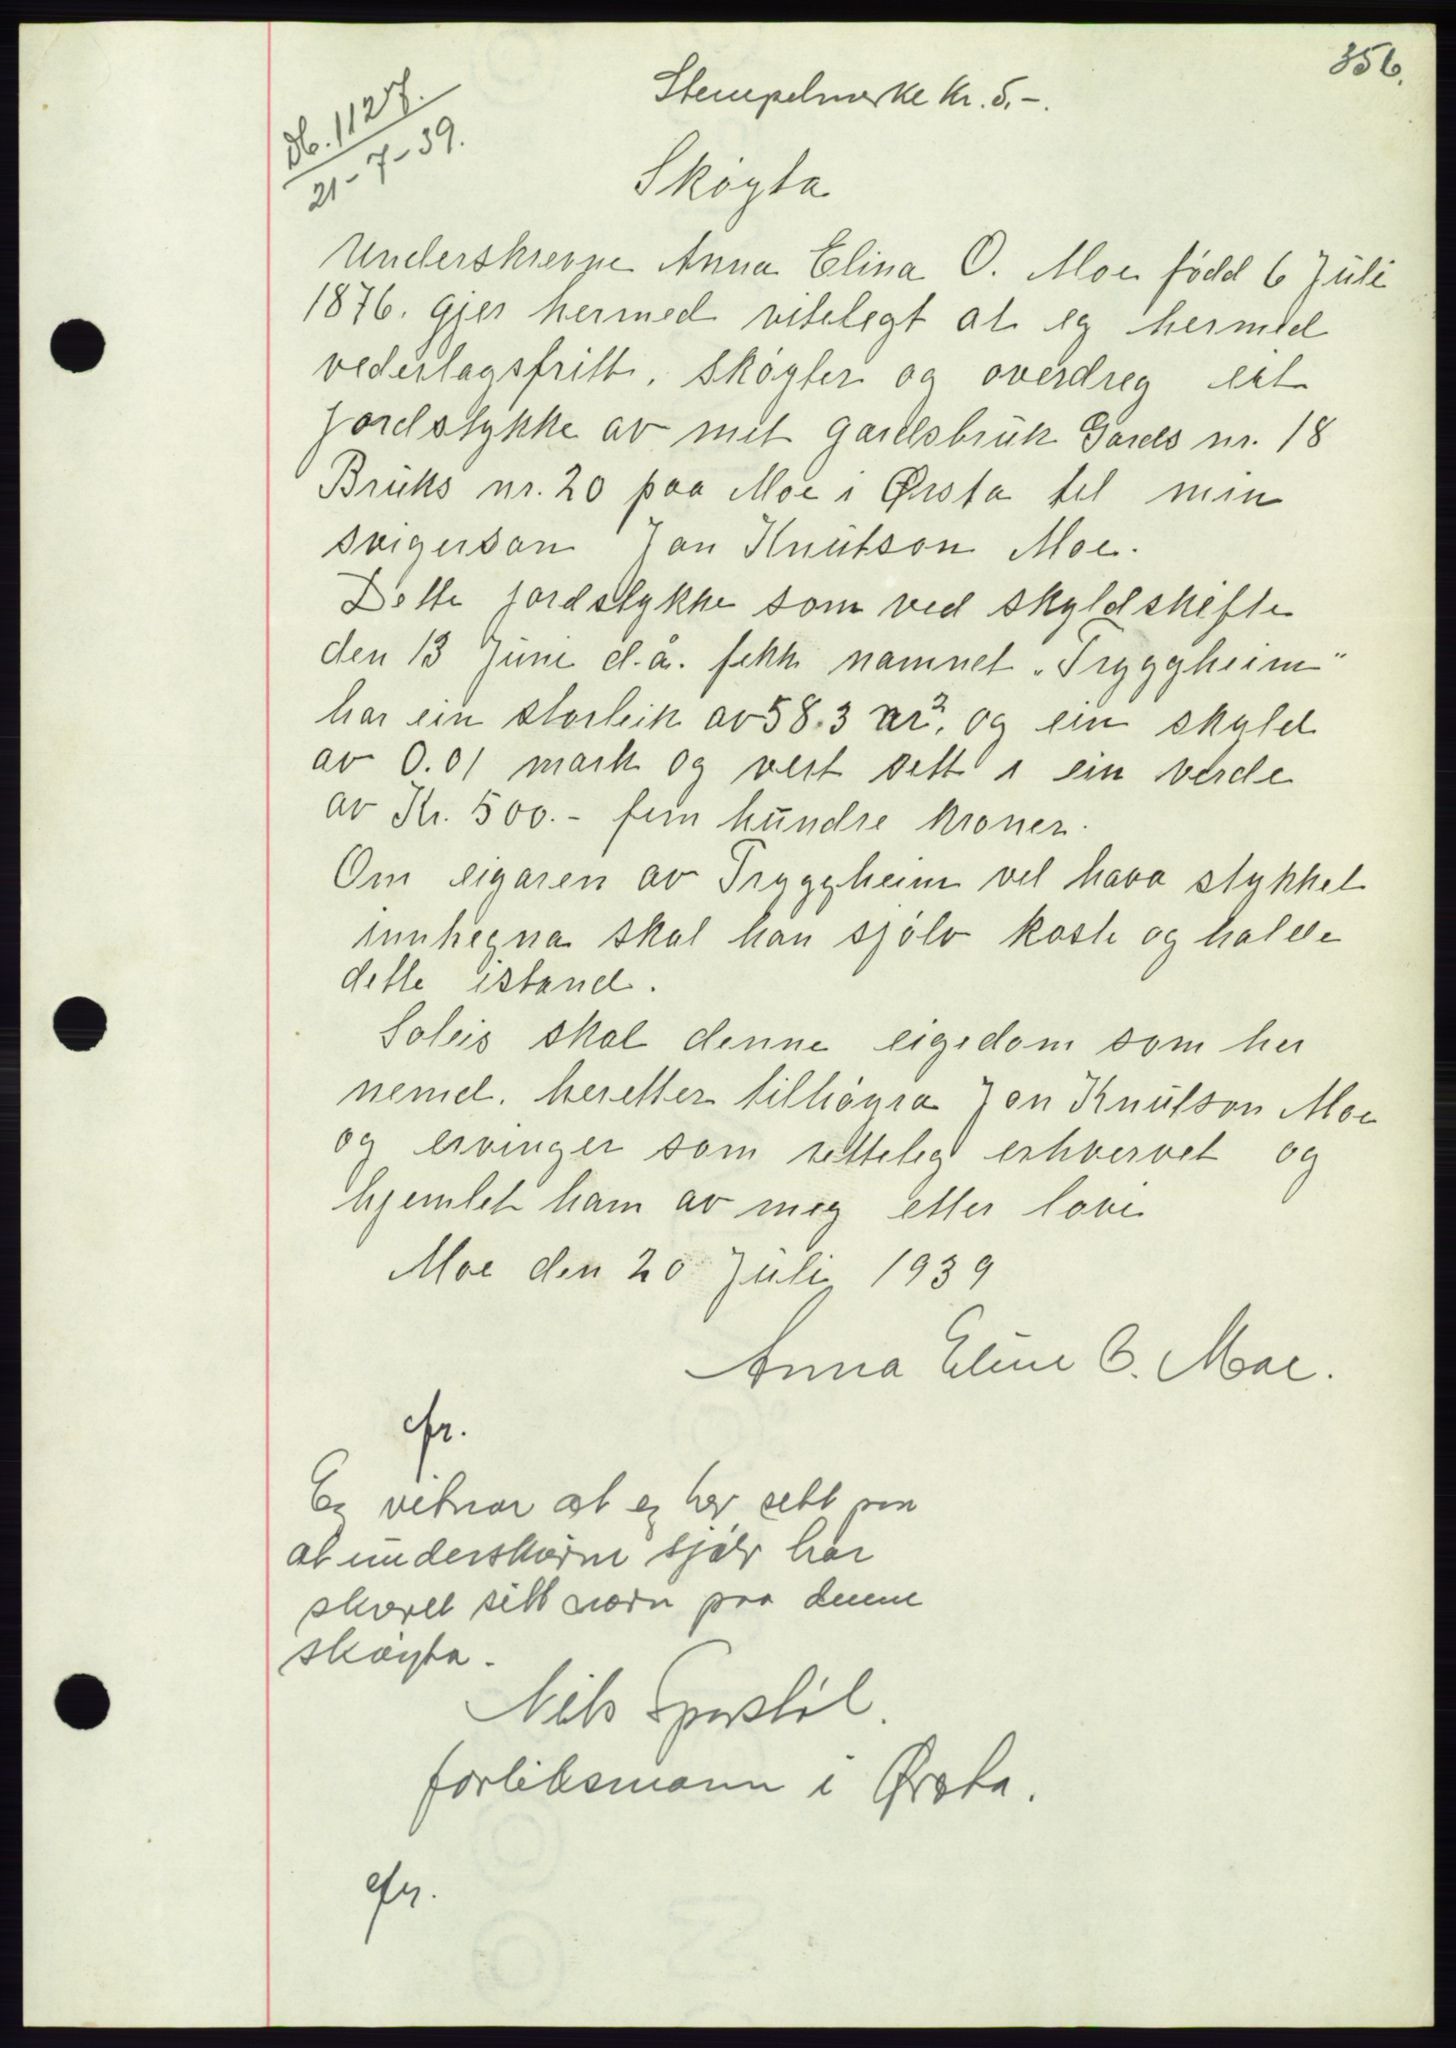 356.
Stempelmerke kr. 5.-.
Db. 1127.
21-7-39.
Skøyta
Underskrevne Anna Elina O. Moe født 6 Juli
1876. gjer hermed vitelegt at eg hermed
vederlagsfritt, skøyter og overdreg eit
jordstykke av mit gardsbruk Gards nr. 18
Bruks nr. 20 paa Moe i Ørsta til min
svigerson Jon Knutson Moe.
Dette jordstykke som ved skyldskifte
den 13 Juni d.å. fekk namnet „Tryggheim"
har ein storleik av 58.3 ar², og ein skyld
av 0.01 mark og vert sett i ein verde
av Kr. 500.- fem hundre kroner.
Om eigaren av Tryggheim vil hava stykket
innhegna skal han sjølv koste og halde
dette istand.
Soleis skal denne eigedom som her
nemd, heretter tilhøyra Jon Knutson Moe
og ervinger som retteleg erhvervet og
hjemlet ham av meg etter lovi
Moe den 20 Juli 1939
Anna Eline O. Moe.
cfr.
Eg vitnar at eg har sett paa
at underskrivne sjølv har
skrevet sitt navn paa denne
skøyta.
Nils
forliksmann i Ørsta.
cfr.